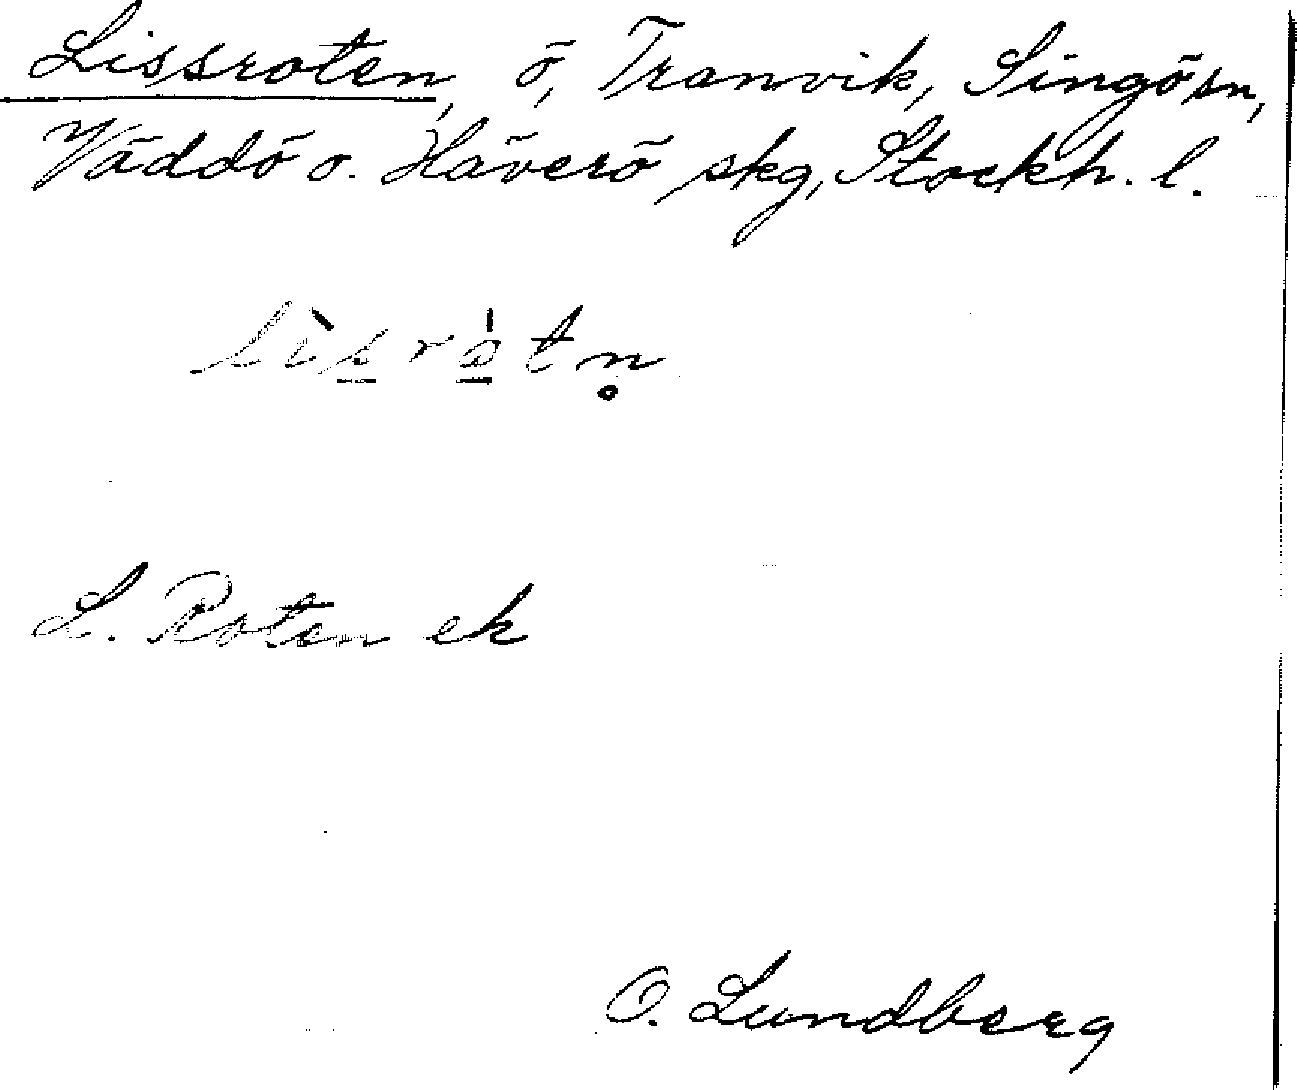 Lissroten, ö, Tranvik, Singö sn,
Väddö o. Häverö skg, Stockh. l.
lìsròtn̥
L. Roten ek
O. Lundberg